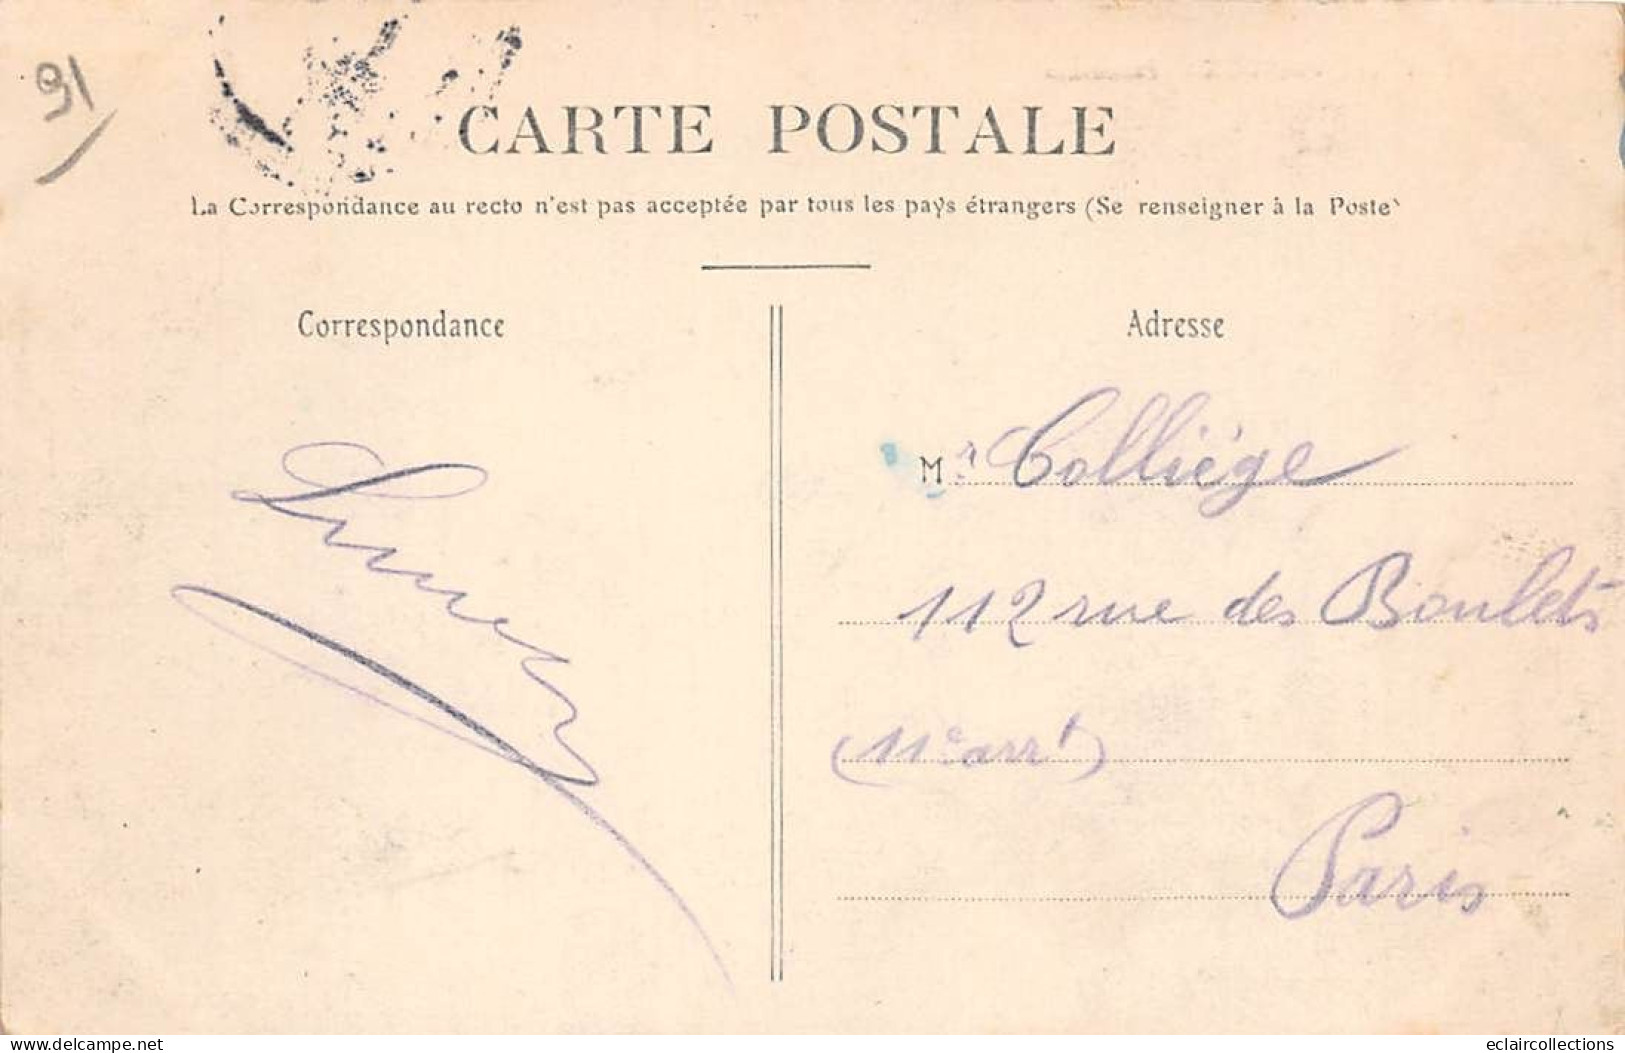 91
CARTE POSTALE
La Correspondance au recto n'est pas acceptée par tous les pays étrangers (Se renseigner à la Poste)
Correspondance
Adresse
Mr Colliége
112 rue des Boulets
(11e arrt)
Paris
delcampe.net
eclaircollections